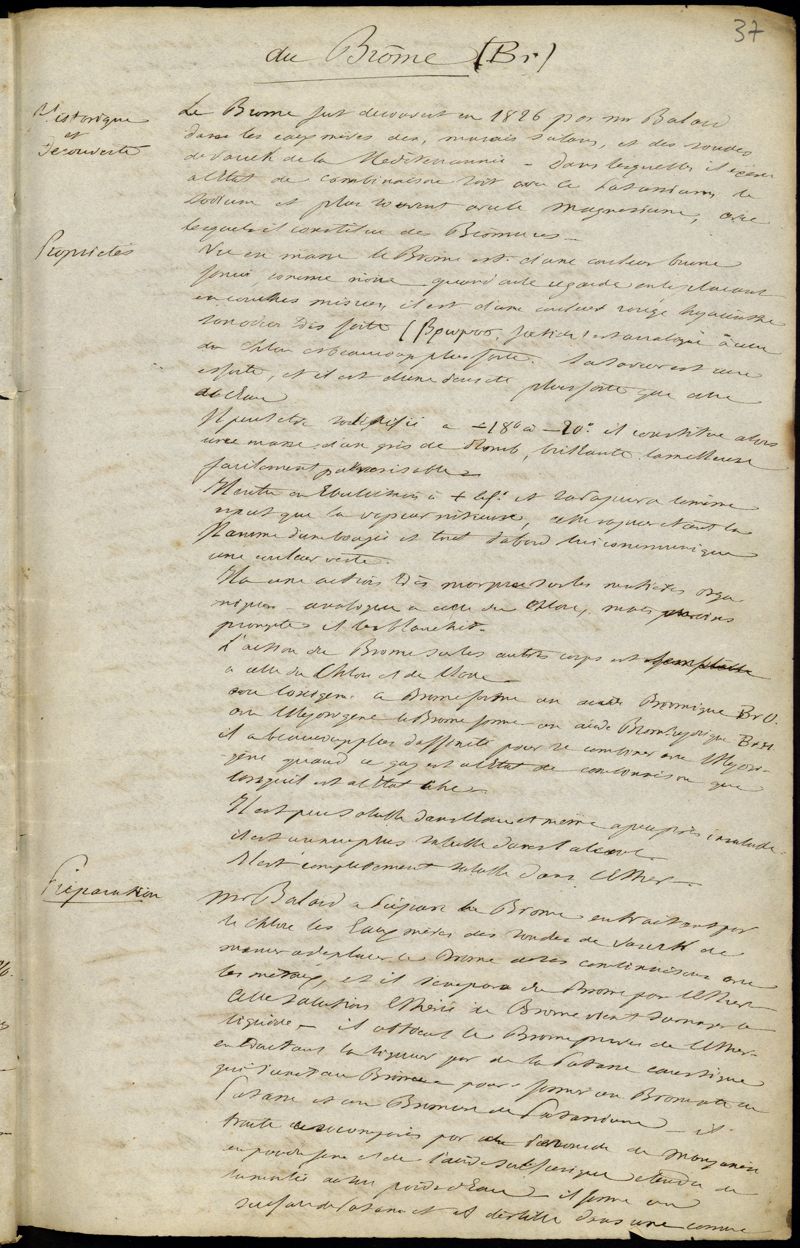 37
du Brôme (Br)
Historique
et
Decouverte
Le Brome fut decouvert en 1826 par mr Balard
dans les eaux mères des marais salans, et des soudes
de Varech de la Mediterrannée - dans lesquelles il
a l'Etat de combinaison soit avec le Potassium, le
Sodium et plus souvent avec le magnesium, avec
lesquels il constitue des Bromures -
Propriétés
Vu en masse le Brome est d'une couleur brune
foncé, comme noire quand on le regarde en le placant
en couches minces, il est d'une couleur rouge hyacinthe
son odeur très forte (Βρωμοσ, foetide) est analogue à celle
du Chlore et beaucoup plus forte. sa saveur est
forte, et il est d'une densité plus forte que celle
de l'Eau
Il peut etre solidifié a -18° à -20° il constitue alors
une masse d'un gris de Plomb, brillante lamelleuse
facilement pulverisable -
Il entre en Ebulition à + 47° et sa vapeur a la même
que la vapeur nitreuse, cette vapeur eteint la
flamme d'une bougie et tout d'abord lui communique
une couleur verte.
Il a une action très sur les matières orga
niques - analogue a celle du Chlore, mais moins
prompte et les blanchit.
L'action du Brome sur les autres corps est
a celle du Chlore et de l'Iode
avec l'oxigene le Brome forme un acide Bromique BrO.
avec l'Hydrogène le Brome forme un acide Bromhydrique BrH
il a beaucoup plus d'affinité pour se combiner avec l'Hydro-
gène quand ce gaz est a l'Etat de combinaison que
lorsqu'il est a l'Etat libre -
Il est peu soluble dans l'eau et même a peu près insoluble -
il est un peu plus soluble dans l'alcool -
Il est completement soluble dans l'Ether -
Préparation
mr Balard a préparé le Brome en traitant par
le Chlore les Eaux mères des soudes de Varech de
manière a deplacer le Brome de ses combinaisons avec
les metaux, et il s'empara du Brome par l'Ether
Cette solution Etherée de Brome vient surnager le
liquide - il obtient le Brome privé de l'Ether
en traitant la liqueur par de la Potasse caustique
qui s'unit au Brome pour former un Bromate de
Potasse et un Bromure de Potassium - il
traite ces composés par du Peroxide de Manganèse
en poudre fine et de l'acide sulfurique etendu de
la moitié de son poids d'Eau - il forme un
sulfate de Potasse et il distille dans une cornue